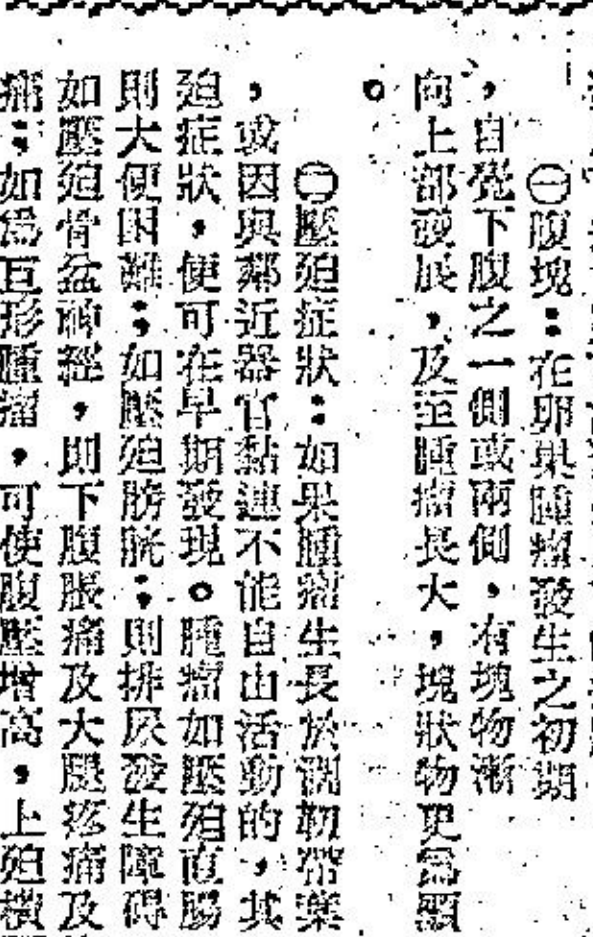 ㊀腹塊：在卵巢腫瘤發生之初期
，自覺下腹之一側或兩側，有塊物漸
向上部發展，及至腫瘤長大，塊狀物更爲顯
。
㊁壓迫症狀：如果腫瘤生長於濶韌帶葉
，或因與鄰近器官黏連不能自由活動的，其
迫症狀，便可在早期發現。腫瘤如壓迫直腸
則大便困難；如壓迫膀胱；則排尿發生障碍
如壓迫骨盆神經，則下腹脹痛及大腿疼痛及
痛；如爲巨形腫瘤，可使腹壓增高，上迫橫